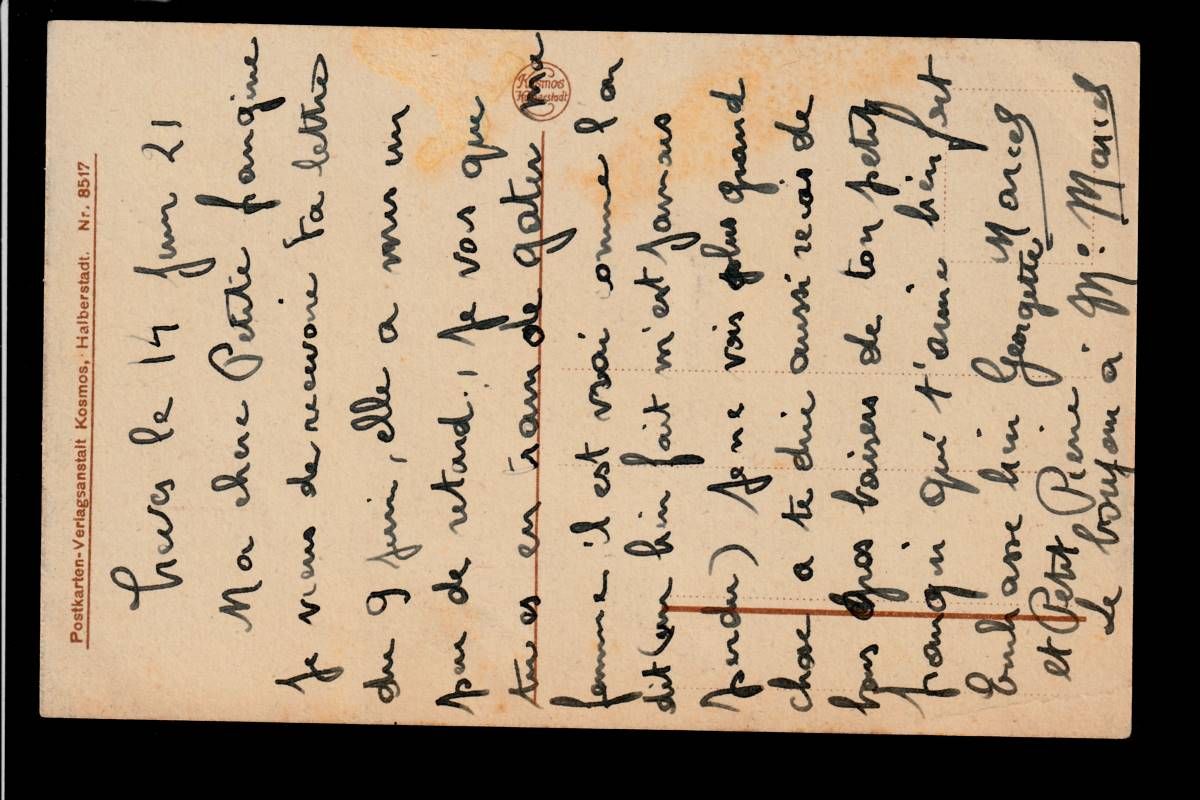 Postkarten-Verlagsanstalt Kosmos, Halberstadt. Nr. 8517
Kosmos
Halberstadt
le 14 Juin 21
Ma chere Petite frangine
Je viens de recevoire ta lettre
du 9 juin, elle a mis un
peu de retard., Je vois que
tu es en train de gater ma
femme, il est vrai comme l on
dit (un bien fait n'est jamais
perdu) Je ne vois plus quand
chose a te dire aussi recois de
bons Gros baisers de ton petit
frangin qui t'aime bien fort
Marcel
Embrasse bien Georgette
et Petit Pierre
Le bonjour à Mr. Marcel